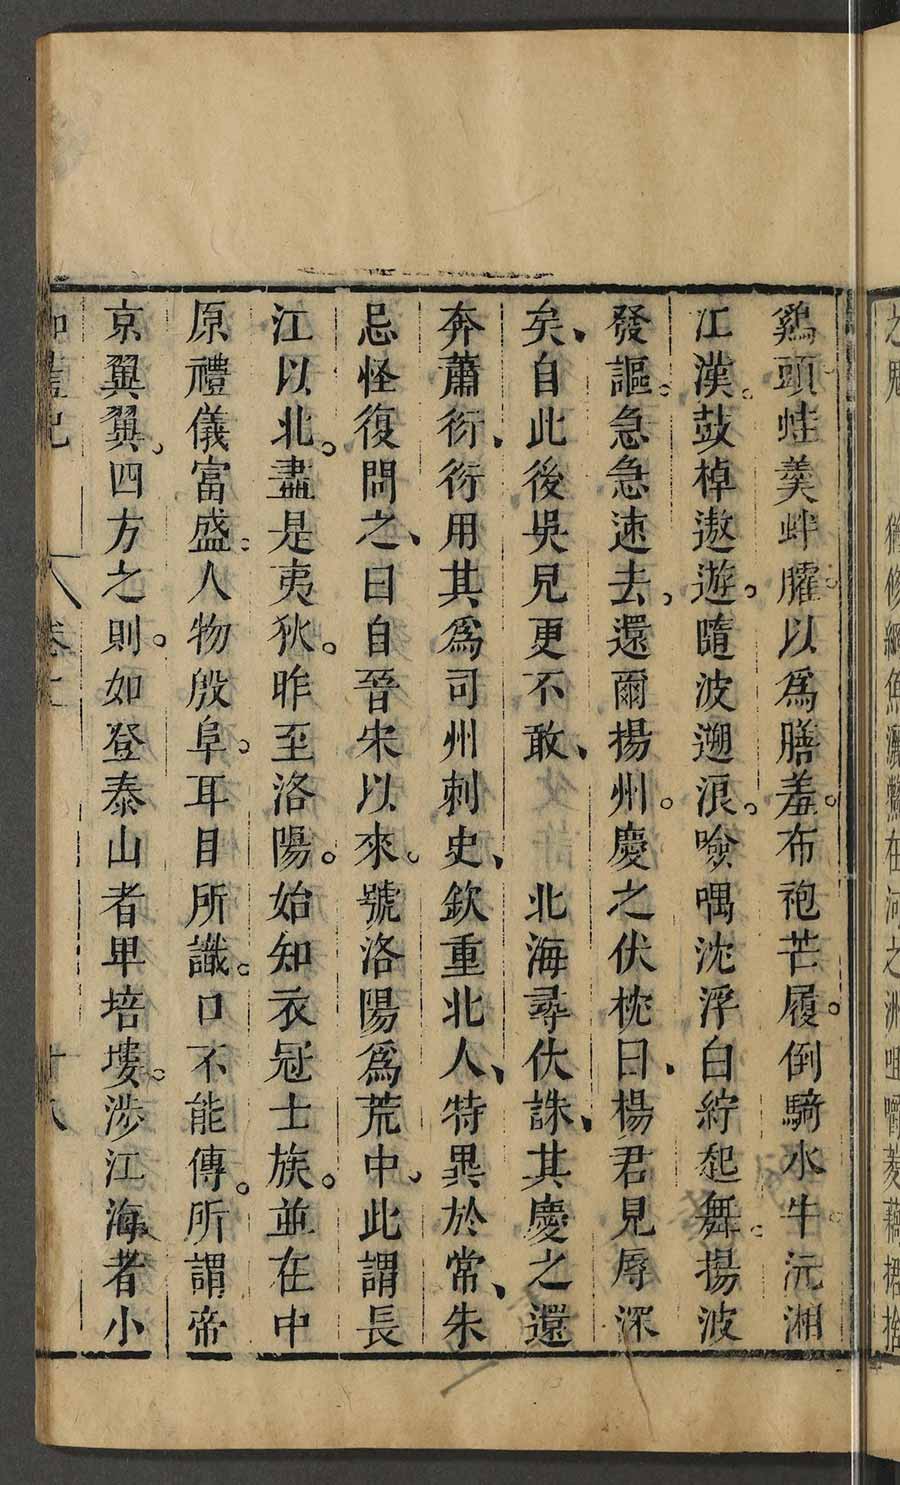 之鬼　　猶修網魚漉鱉在河之洲咀嚼菱藕捃拾
鷄頭蛙羹蚌臛以爲膳羞。布袍芒履。倒騎水牛。沅湘
江漢。鼓棹遨遊。隨波遡浪。噞喁沈浮。白紵起舞。揚波
發謳。急急速去。還爾揚州。慶之伏枕曰、楊君見辱深
矣、自此後吳兒更不敢、　　北海尋伏誅、其慶之還
奔蕭衍、衍用其爲司州刺史、欽重北人、特異於常、朱
忌怪復問之、曰自晉宋以來。號洛陽爲荒中。此謂長
江以北。盡是夷狄。昨至洛陽。始知衣冠士族。並在中
原。禮儀富盛。人物殷阜。耳目所識。口不能傳。所謂帝
京翼翼。四方之則。如登泰山者卑培塿。涉江海者小
卷二
十八